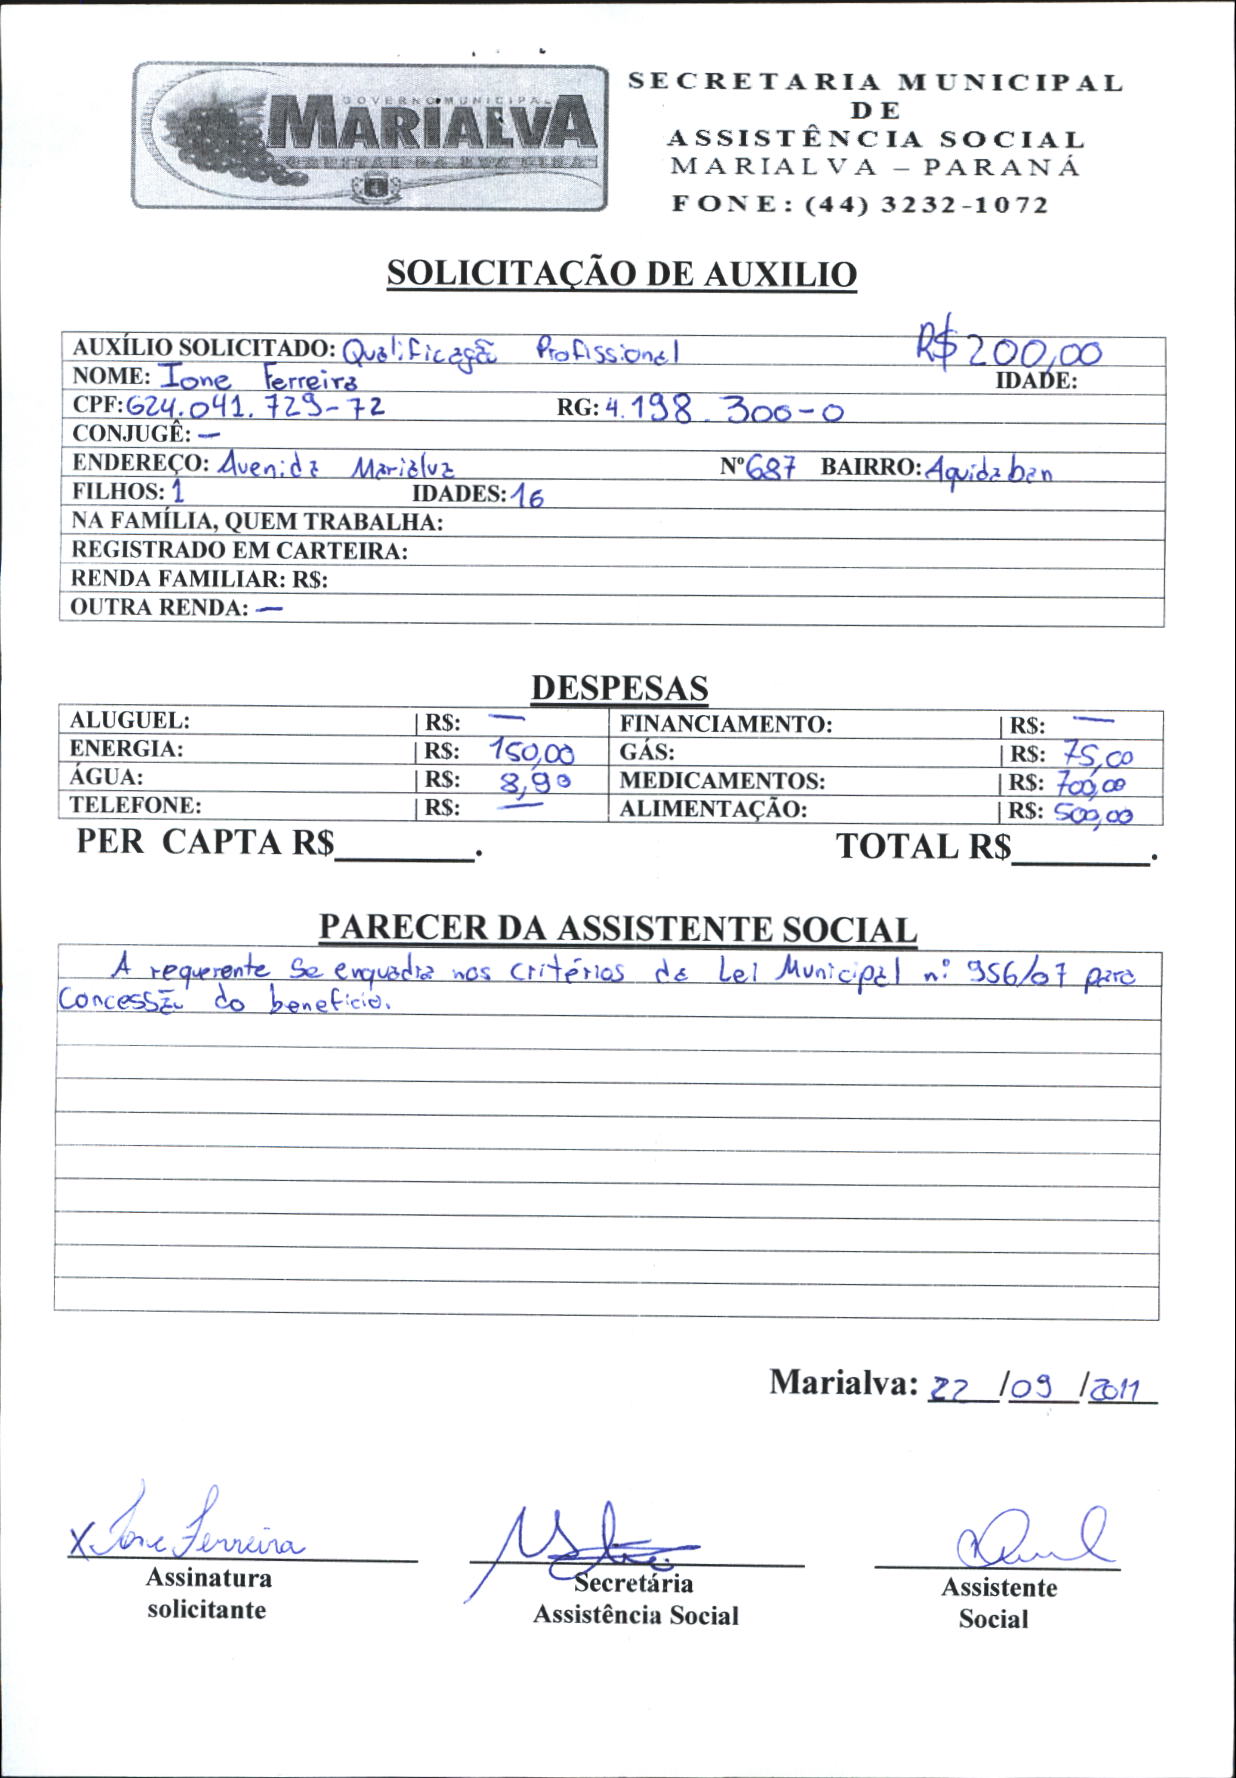 GOVERNO MUNICIPAL
MARIALVA
CAPITAL DA UVA FINA
SECRETARIA MUNICIPAL
DE
ASSISTÊNCIA SOCIAL
MARIALVA – PARANÁ
FONE: (44) 3232-1072
SOLICITAÇÃO DE AUXILIO
AUXÍLIO SOLICITADO: Qualificação Profissional R$ 200,00
NOME: Ione Ferreira IDADE:
CPF: 624.041.729-72 RG: 4.198.300-0
CONJUGÊ: —
ENDEREÇO: Avenida Marialva Nº 687 BAIRRO: Aquidaban
FILHOS: 1 IDADES: 16
NA FAMÍLIA, QUEM TRABALHA:
REGISTRADO EM CARTEIRA:
RENDA FAMILIAR: R$:
OUTRA RENDA: —
DESPESAS
ALUGUEL: | R$: — FINANCIAMENTO: | R$: —
ENERGIA: | R$: 150,00 GÁS: | R$: 75,00
ÁGUA: | R$: 8,90 MEDICAMENTOS: | R$: 700,00
TELEFONE: | R$: — ALIMENTAÇÃO: | R$: 500,00
PER CAPTA R$________. TOTAL R$________.
PARECER DA ASSISTENTE SOCIAL
A requerente se enquadra nos critérios da Lei Municipal nº 956/07 para
Concessão do benefício.
Marialva: 22 /09 /2011
X Ione Ferreira
Assinatura Secretária Assistente
solicitante Assistência Social Social